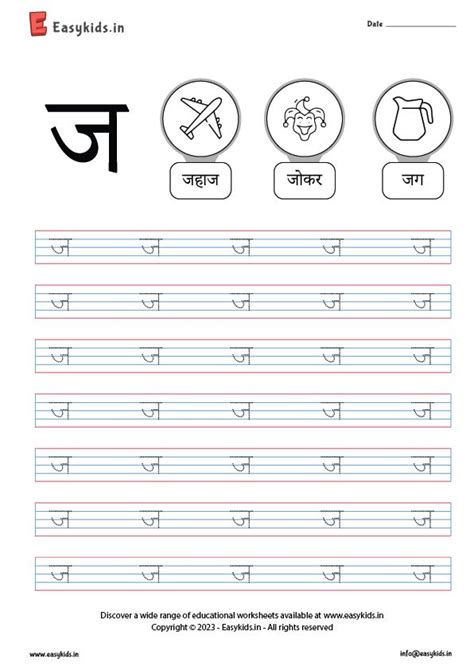 E Easykids.in
Date
ज
जहाज जोकर जग
ज ज ज ज ज
ज ज ज ज ज
ज ज ज ज ज
ज ज ज ज ज
ज ज ज ज ज
ज ज ज ज ज
ज ज ज ज ज
Discover a wide range of educational worksheets available at www.easykids.in
Copyright © 2023 - Easykids.in - All rights reserved
www.easykids.in info@easykids.in